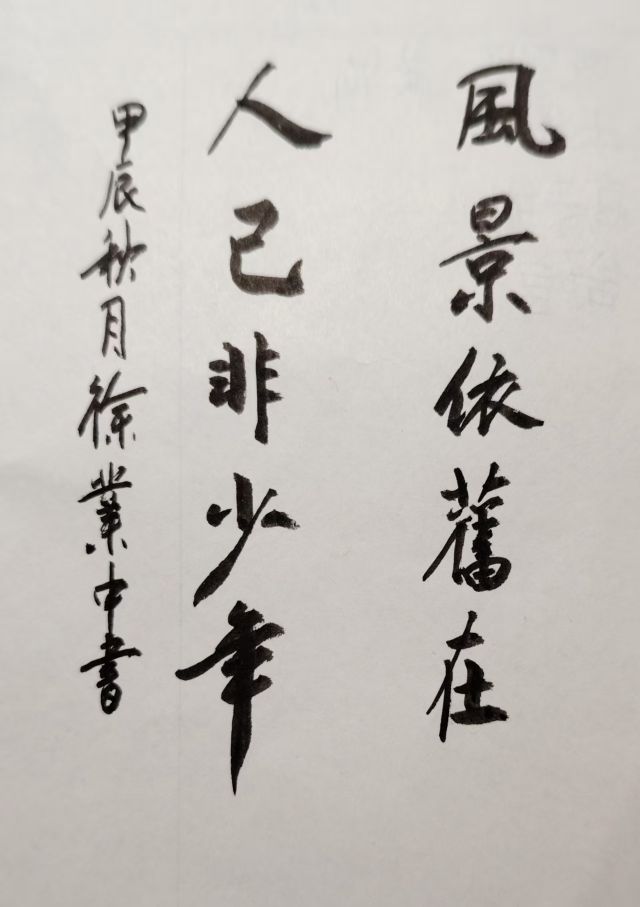 風景依舊在
人已非少年
甲辰秋月徐業中書